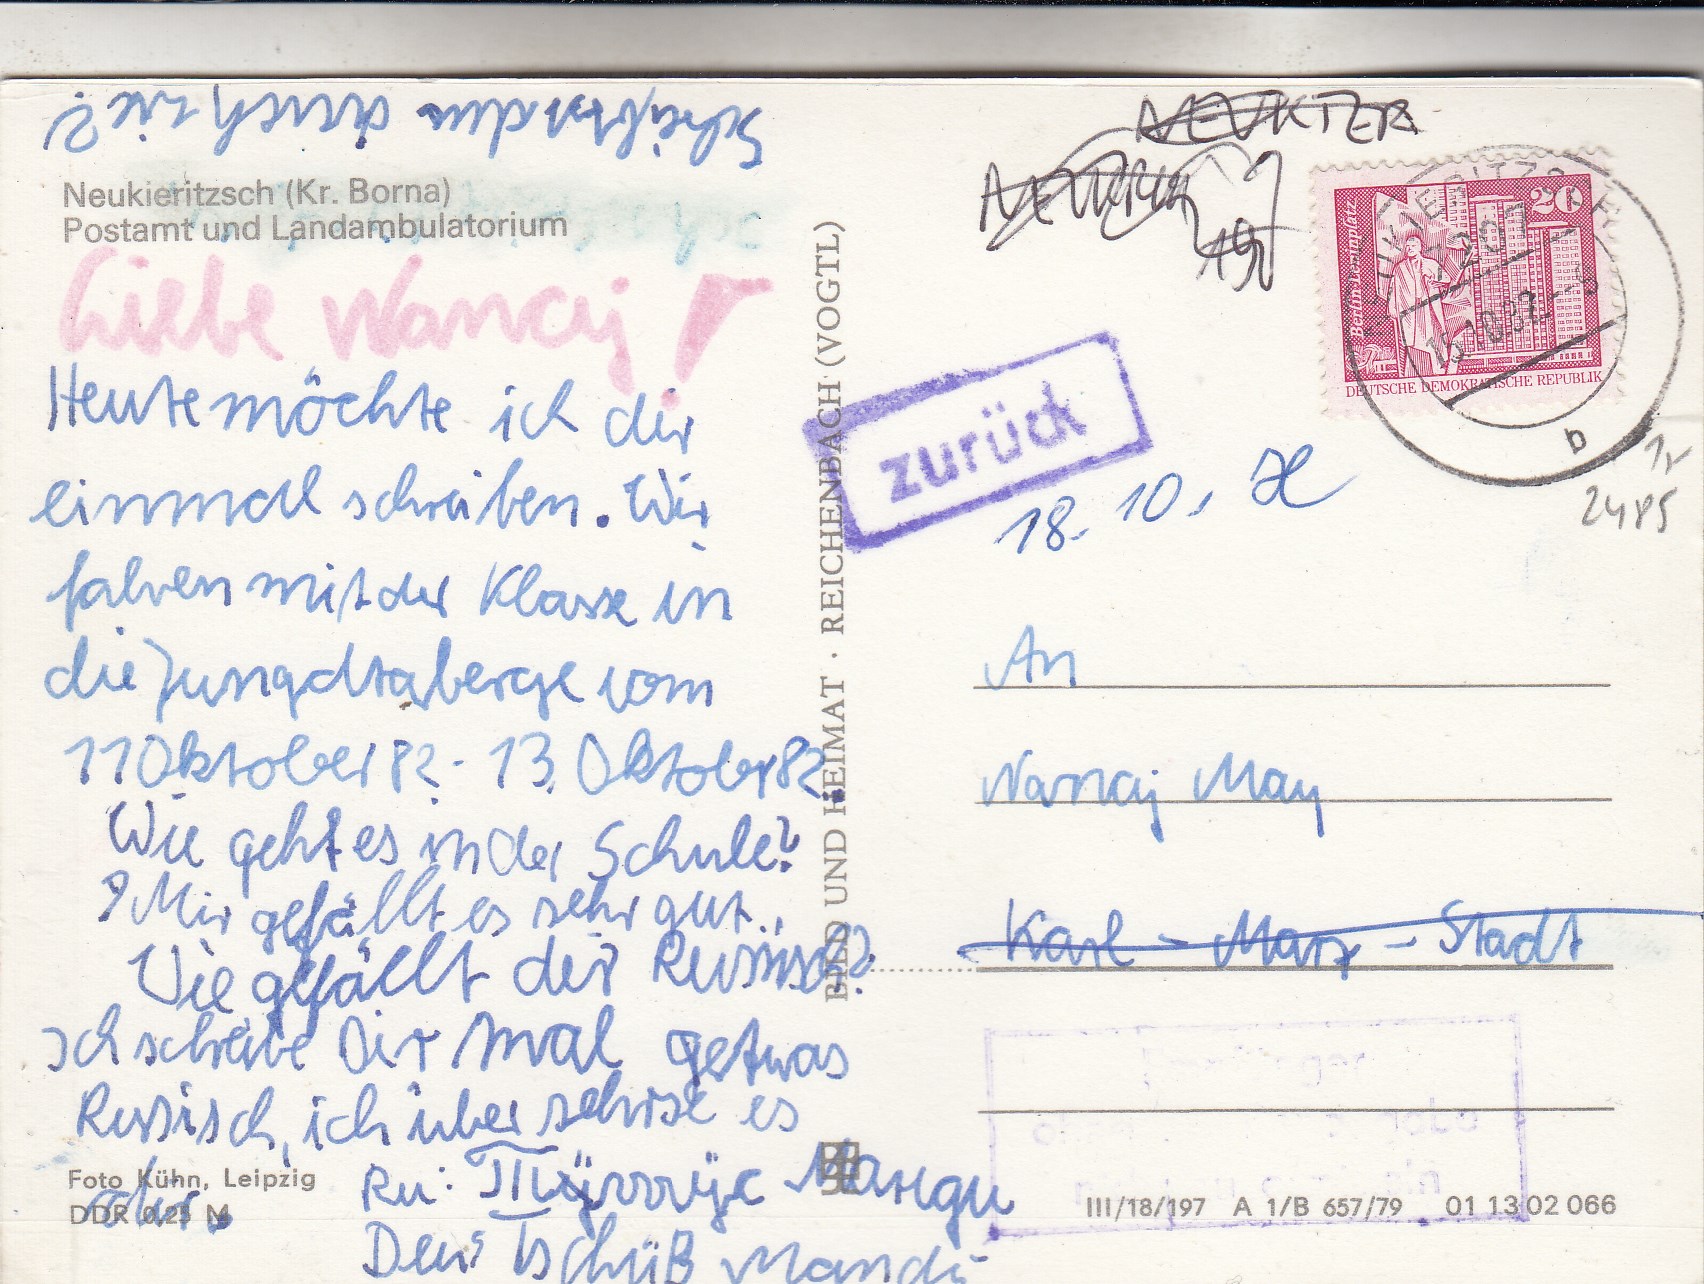 Schreibst du mir auch wie?
Neukieritzsch (Kr. Borna)
Postamt und Landambulatorium
Liebe Nancy!
Heute möchte ich dir
einmal schreiben. Wir
fahren mit der Klasse in
die Jungdraberge vom
11 Oktober 82 - 13. Oktober 82
Wie geht es in der Schule?
Mir gefällt es sehr gut.
Wie gefällt dir Russisch?
Ich schreibe Dir mal getwas
Russisch, ich überschise es
dir.
Ru:
Манди
Deu: Tschüß Mandi
Foto Kühn, Leipzig
DDR 0,25 M
BILD UND HEIMAT · REICHENBACH (VOGTL)
NEUKIER
190
20
Berlin-Leninplatz
DEUTSCHE DEMOKRATISCHE REPUBLIK
NEUKIERITZSCH
7201
15.10.82
b
zurück
18. 10.
2485
An
Nancy May
Karl-Marx-Stadt
III/18/197 A 1/B 657/79 01 13 02 066